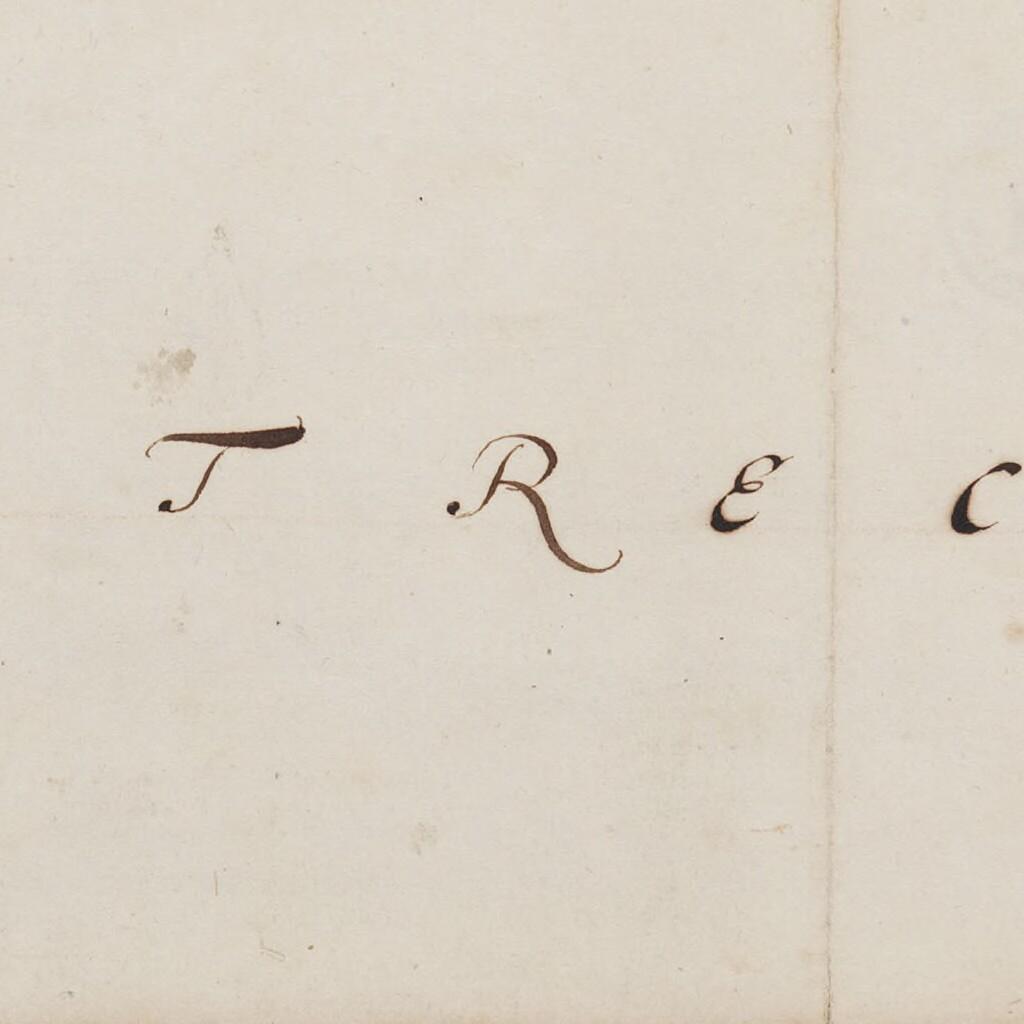 T R E C